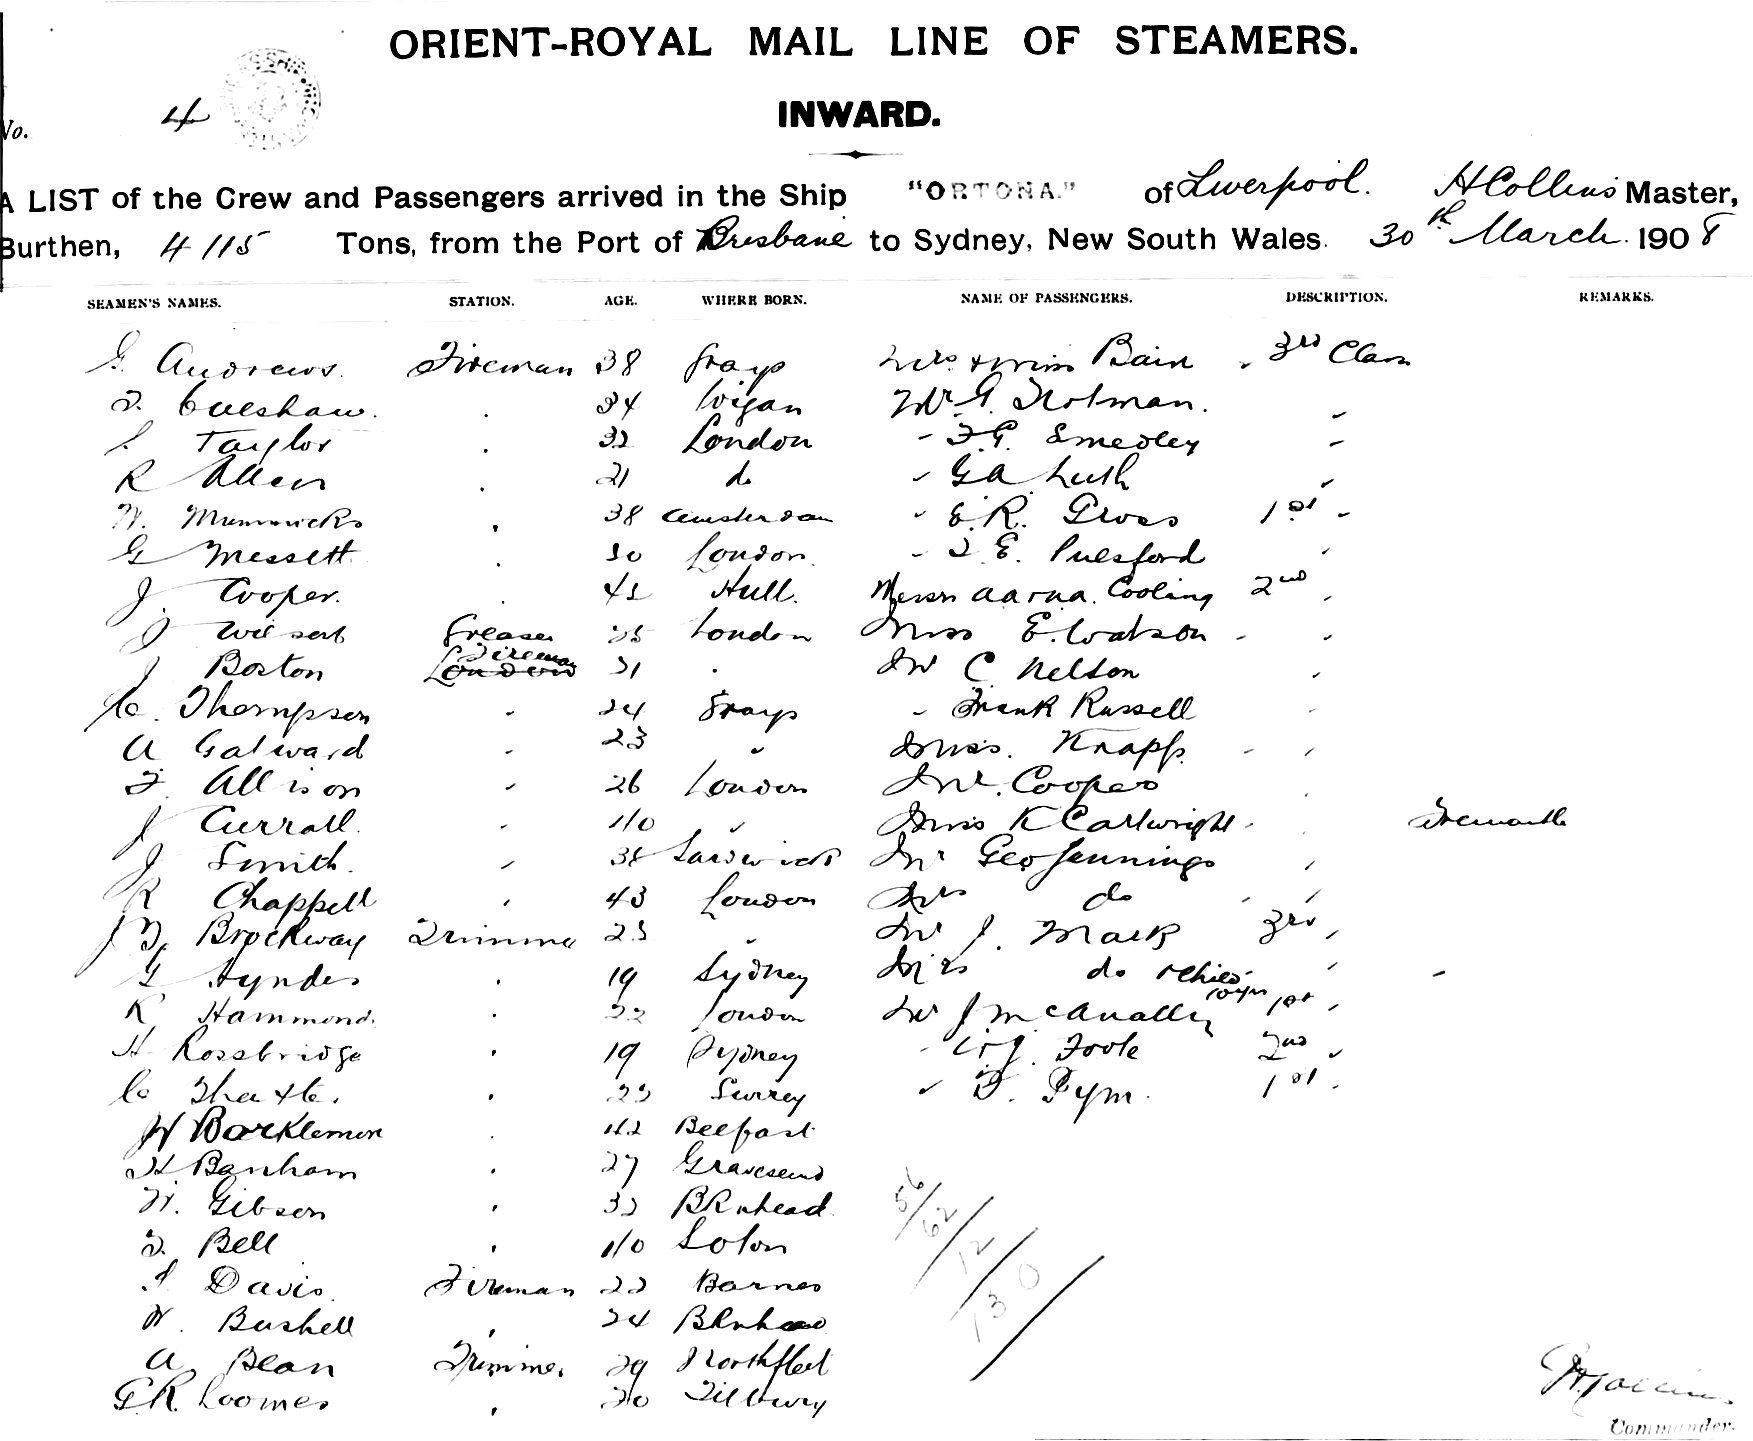 ORIENT-ROYAL MAIL LINE OF STEAMERS.
INWARD.
No. 4
A LIST of the Crew and Passengers arrived in the Ship "ORTONA." of Liverpool. H Collins Master,
Burthen, 4115 Tons, from the Port of Brisbane to Sydney, New South Wales. 30th March. 1908
SEAMEN'S NAMES. STATION. AGE. WHERE BORN. NAME OF PASSENGERS. DESCRIPTION. REMARKS.
G. Andrews. Fireman 38 Grays Mrs & Miss Bain " 3rd Class
34 Wigan Mr G. Trotman.
Taylor 32 London " F.G. Smedley
R Allen 21 do " G A
W. 38 Amsterdam " E.R. Gross 1st "
G Messett 30 London. " E. Pulsford
J. Cooper. Hull. Cooling 2nd "
J Greaser London Miss E. Watson " "
J Boston Fireman London 31 Mr C Nelson "
C. Thompson " 24 Grays " Frank Russell "
A Galward " 23 " Miss. Knapp. " "
F. Allison " 26 London Mr. Cooper
J Currall. " 40 " Miss K Cartwright " Fremantle
J Smith. " 38 Mr Geo Jennings "
R Chappell " 43 London Mrs do " "
J Brockway Trimmer " Mr J. Mack 3rd "
G Hyndes 19 Sydney Mrs do & child " "
K Hammond. 22 London Mr J McAnally 1st "
H Rossbridge 19 Sydney " Foole 2nd "
C 23 Surrey " F. Pym. 1st "
W Barklemon 42 Belfast
H. Banham 27 Gravesend
W. Gibson 32 BKnhead 56/
Bell 40 Soton 62/ 12/
Davis. Fireman 22 Barnes 130/
W. Bushell 24 BKnhead
A. Bean Trimmer 29 Northfleet
G.R. Loomes 20 Tilbury
H. Collins
Commander.